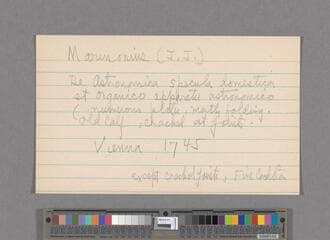 Marinonius (J. J.)
De Astronomica specula domestica
et organico apparatu astronomico
( numerous plates, math folding.
Old calf, cracked at joints
Vienna 1745
except cracked joints, Fine Condition